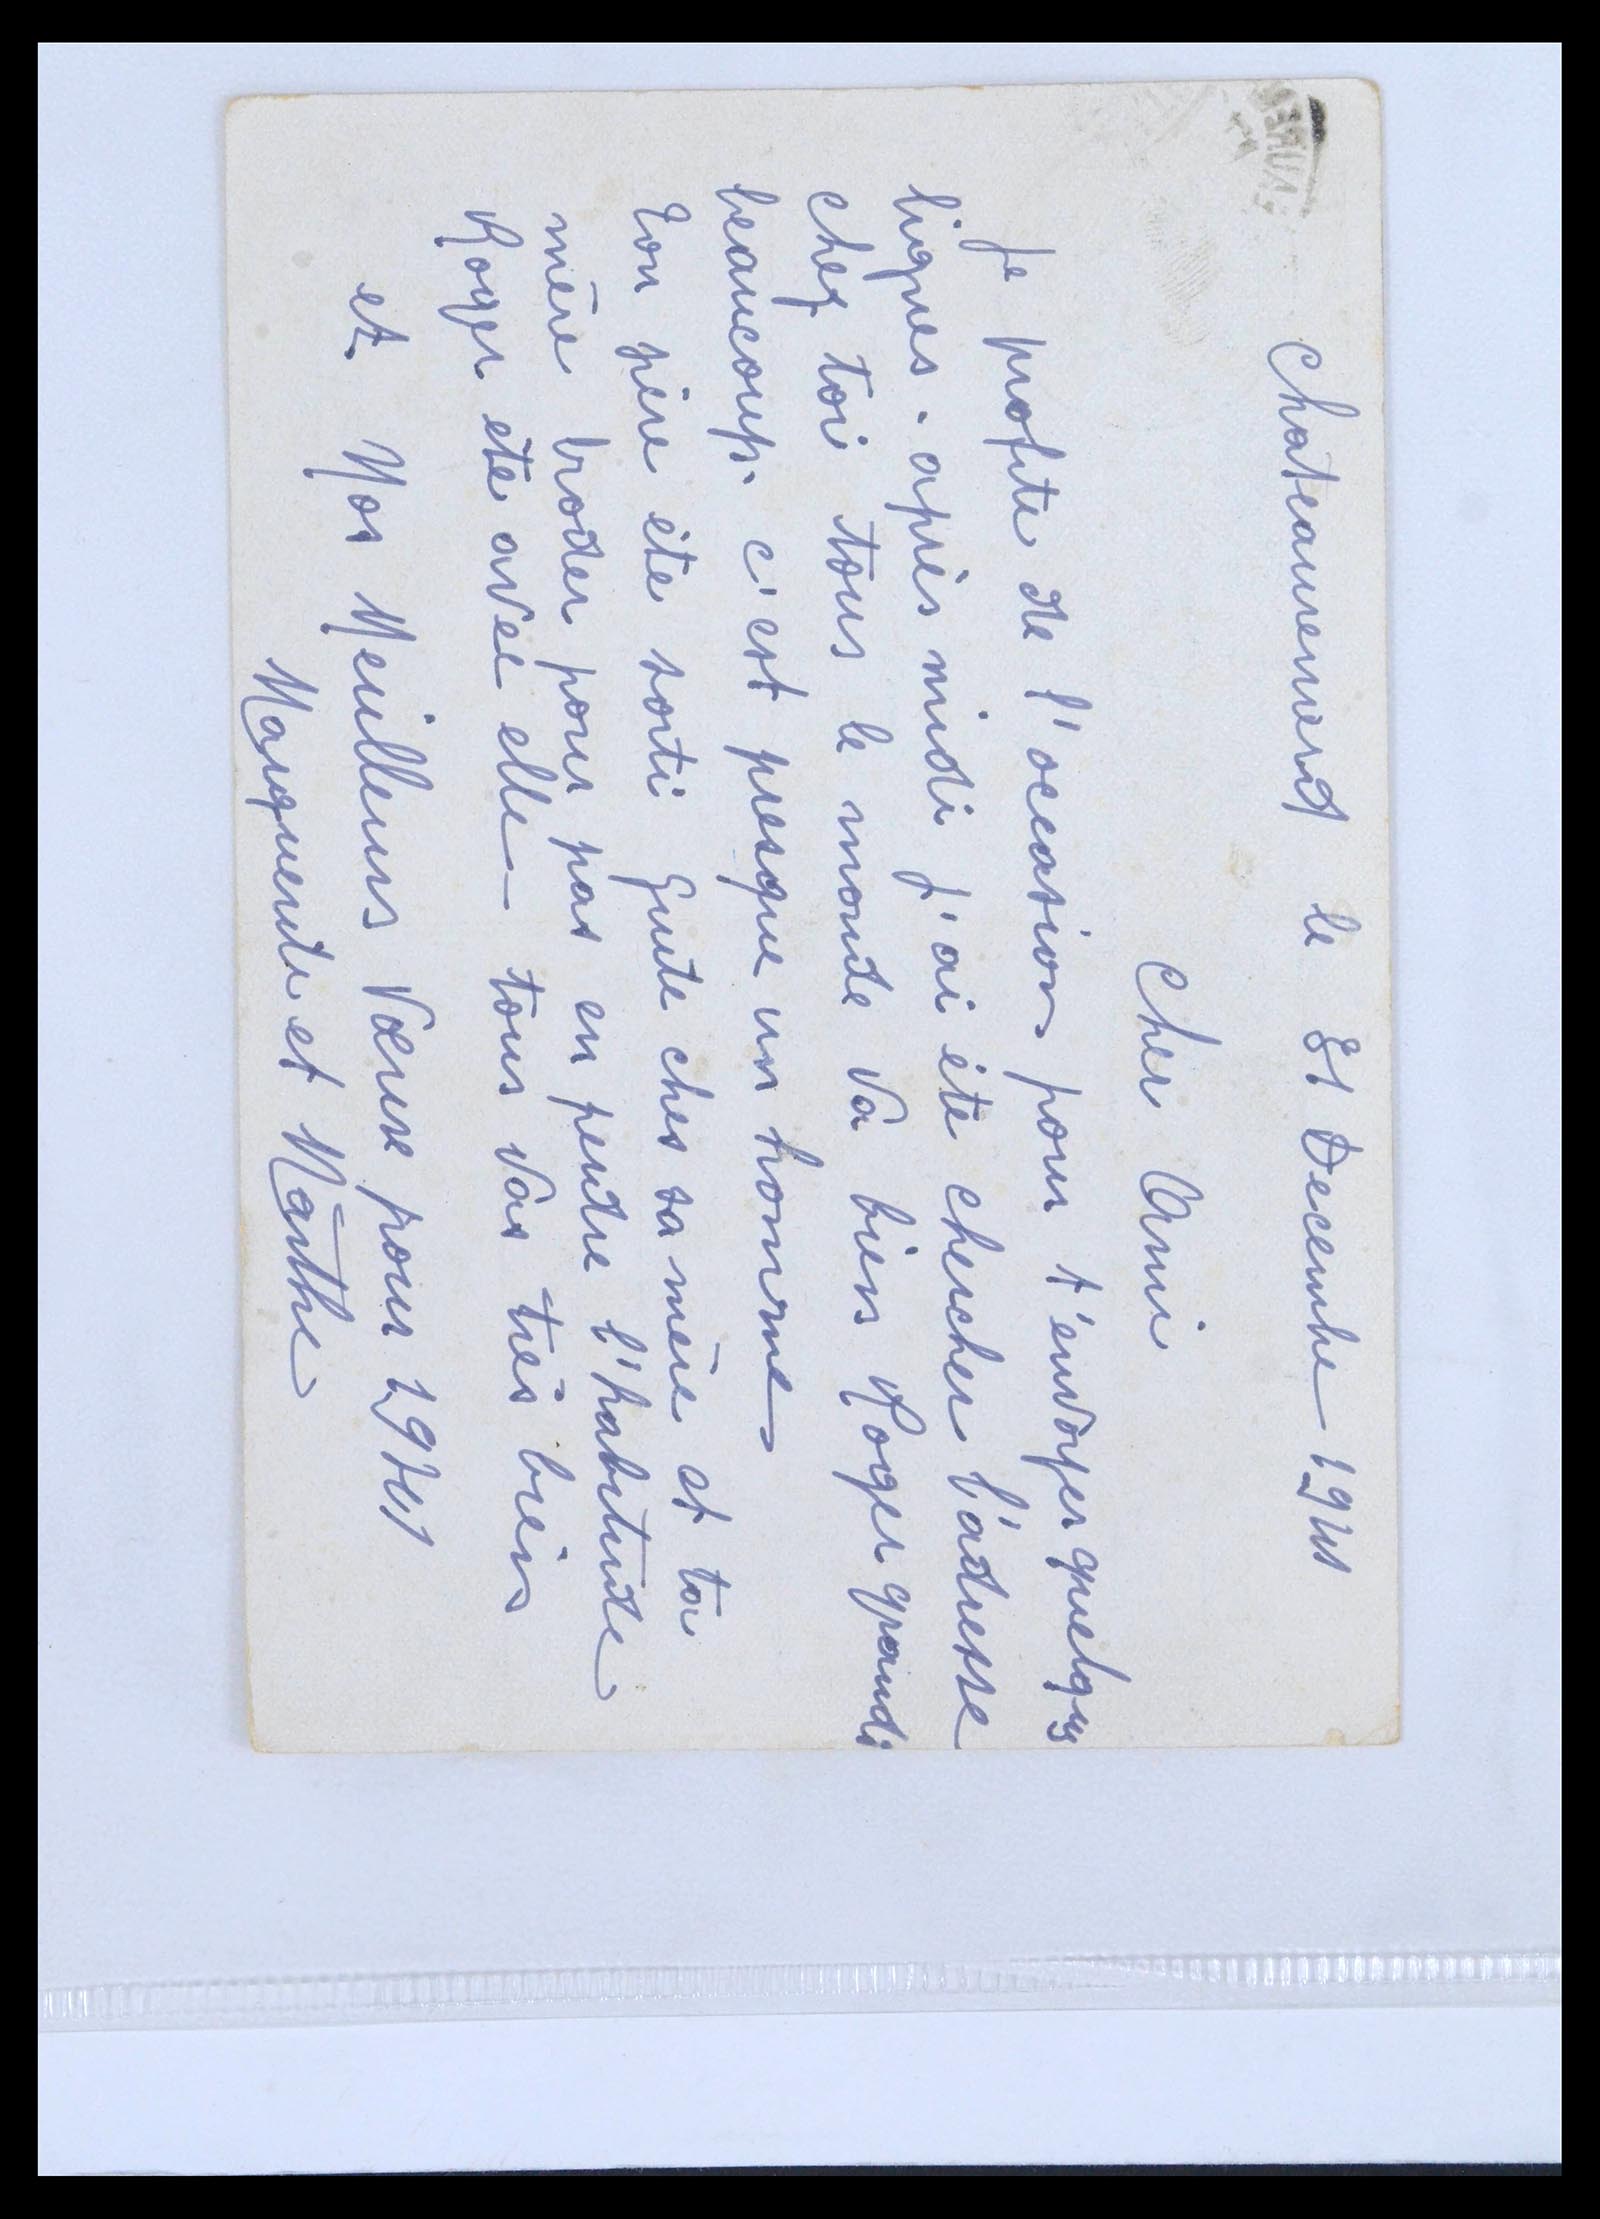 Chateaurenard le 31 Decembre 1941
Cher Ami
Je profite de l'occasion pour t'envoyer quelques
lignes. après midi j'ai éte chercher l'adresse
chez toi tous le monde va bien Roger grandi
beaucoup. c'est presque un homme
ton père éte sorti Guite ches sa mère et ta
mère broder pour pas en perdre l'habitude
Roger éte avec elle tous vas très bien
et Nos Meilleurs Vœux pour 1941
Marguerite et Marthe